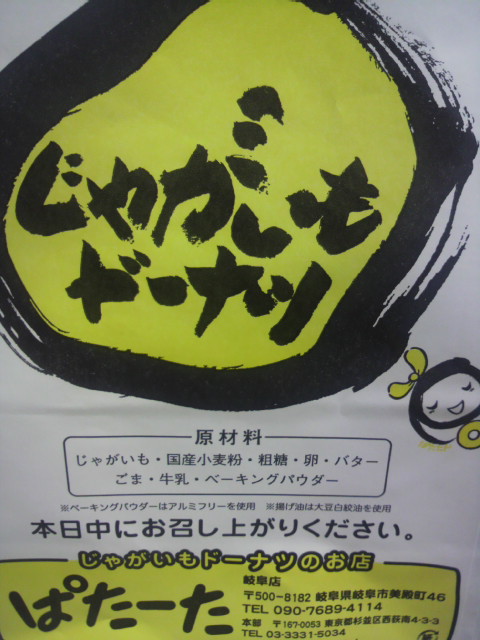 じゃがいも
ドーナツ
原材料
じゃがいも・国産小麦粉・粗糖・卵・バター
ごま・牛乳・ベーキングパウダー
※ベーキングパウダーはアルミフリーを使用　※揚げ油は大豆白絞油を使用
本日中にお召し上がりください。
じゃがいもドーナツのお店
ぱたーた
岐阜店
〒500-8182 岐阜県岐阜市美殿町46
TEL 090-7689-4114
本部　〒167-0053 東京都杉並区西荻南4-3-3
TEL 03-3331-5034